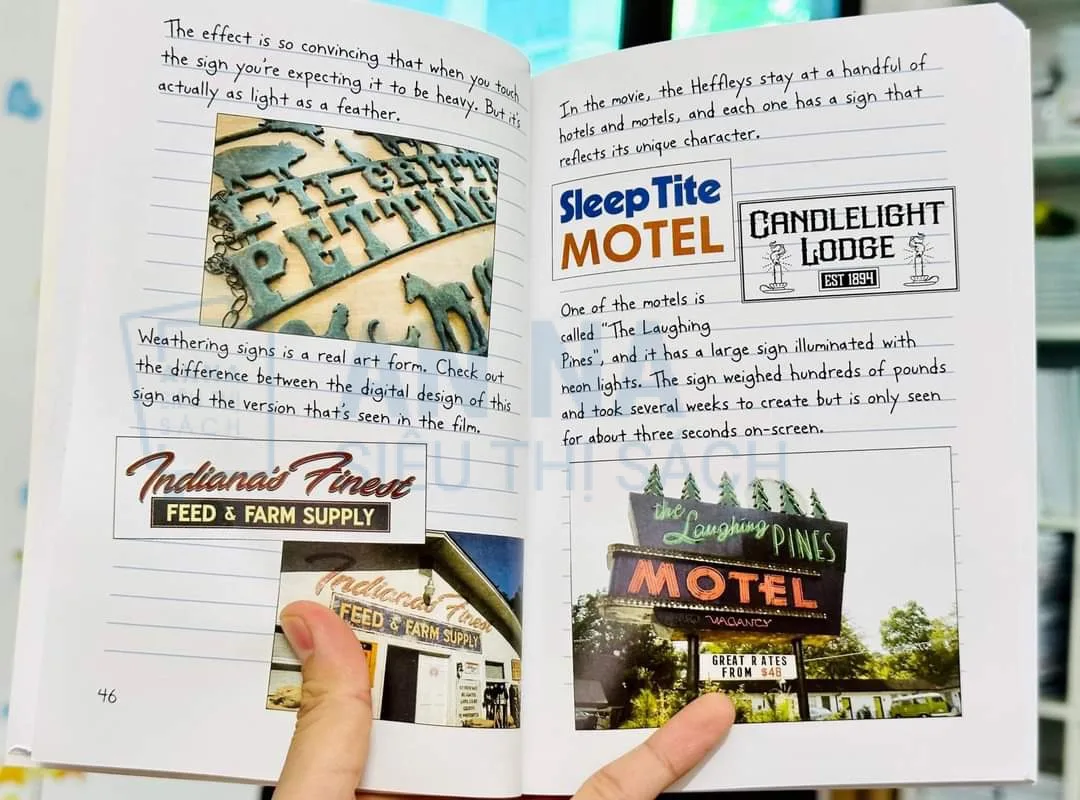 The effect is so convincing that when you touch
the sign you're expecting it to be heavy. But it's
actually as light as a feather.
L'IL CRITTER
PETTING
Weathering signs is a real art form. Check out
the difference between the digital design of this
sign and the version that's seen in the film.
Indiana's Finest
FEED & FARM SUPPLY
Indiana's Finest
FEED & FARM SUPPLY
46
In the movie, the Heffleys stay at a handful of
hotels and motels, and each one has a sign that
reflects its unique character.
Sleep Tite
MOTEL
CANDLELIGHT
LODGE
EST 1894
One of the motels is
called "The Laughing
Pines", and it has a large sign illuminated with
neon lights. The sign weighed hundreds of pounds
and took several weeks to create but is only seen
for about three seconds on-screen.
the
Laughing PINES
MOTEL
VACANCY
GREAT RATES
FROM $48
AN NA
SIÊU THỊ SÁCH